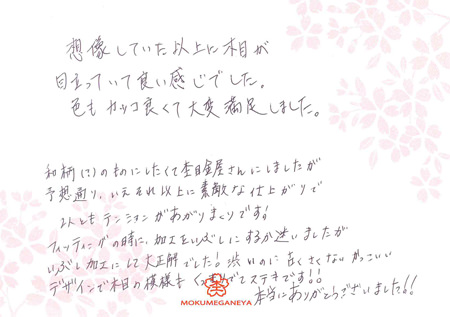 想像していた以上に木目が
目立っていて良い感じでした。
色もカッコ良くて大変満足しました。
和柄(?)のものにしたくて杢目金屋さんにしましたが
予想通り、いえそれ以上に素敵な仕上がりで
2人ともテンションがあがりまくりです!
フィッティングの時に、加工をいぶしにするか迷いましたが
いぶし加工にして大正解でした!渋いのに古くさくないかっこいい
デザインで木目の模様もくっきりでてステキです!!
本当にありがとうございました!!
MOKUMEGANEYA